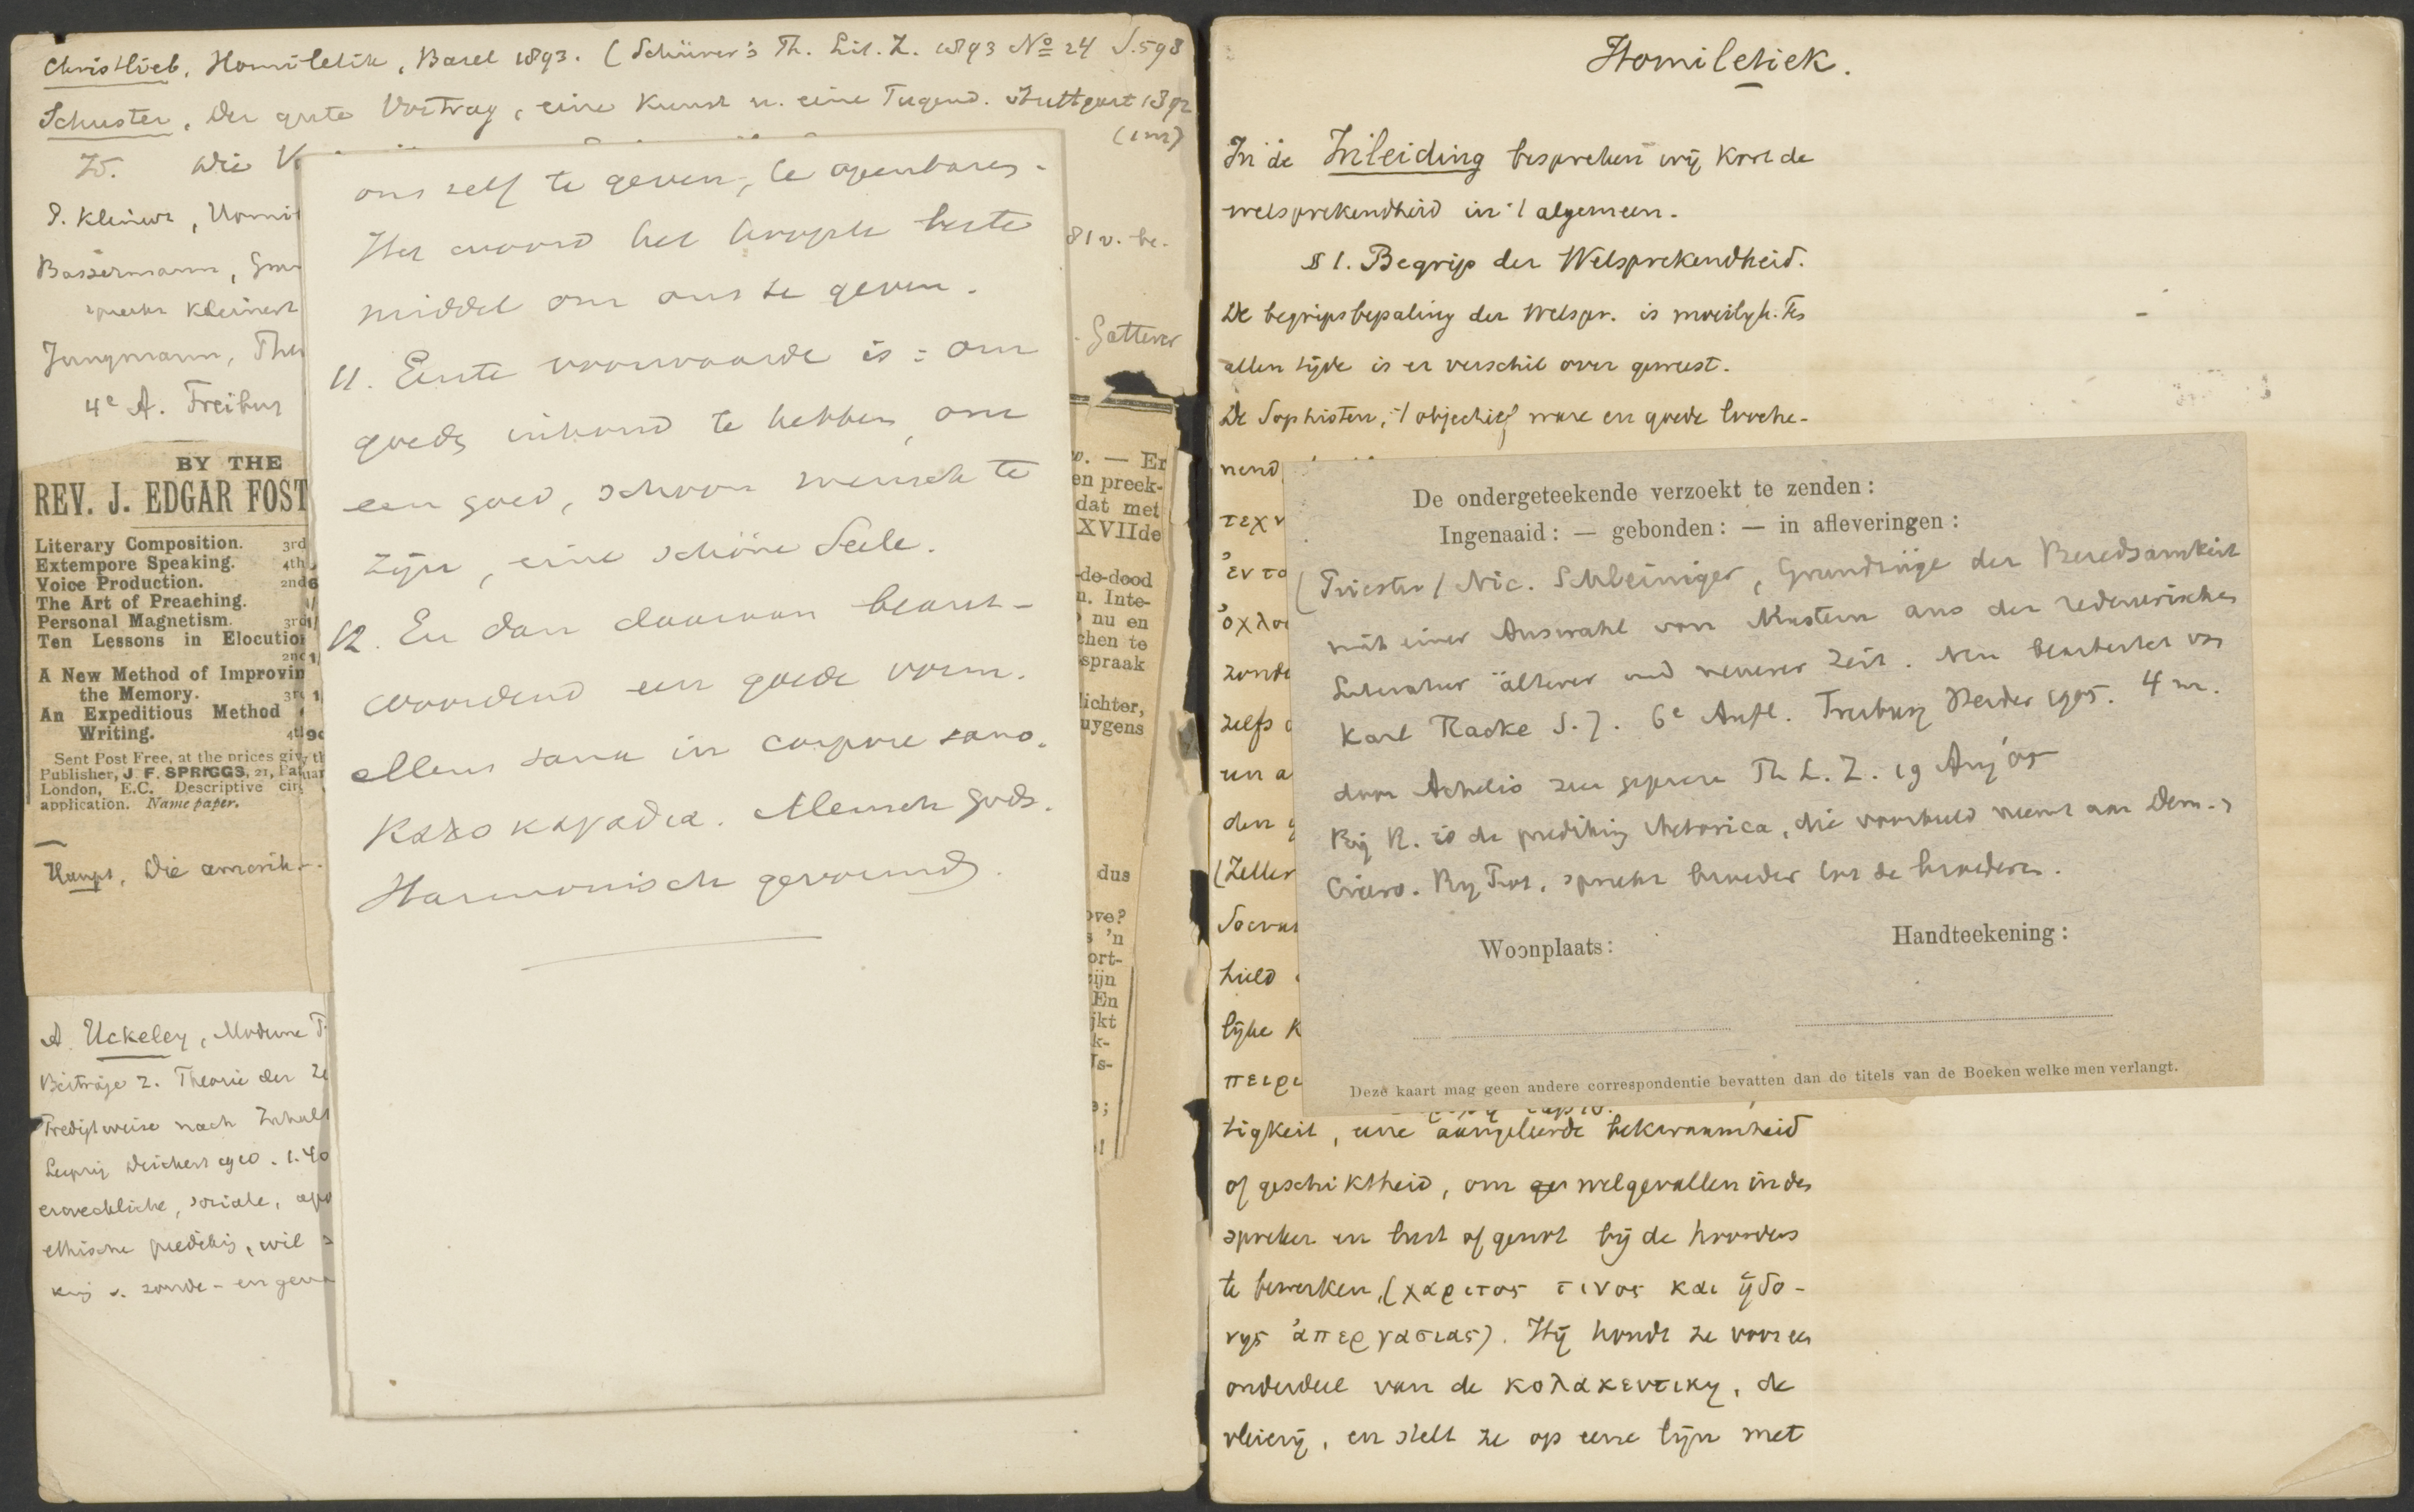 Christlieb, Homiletik, Basel 1893. (Schürer's Th. Lit. Z. 1893 No 24 S. 598
Schuster, Der gute Vortrag, eine Kunst u. eine Tugend. Stuttgart 1892
(1 m)
Id. Wie V
P. Kleinert, Homil
Bassermann,
spreekt Kleinert
Jungmann, The
4e A. Freibur
81 v. be.
Gatterer
BY THE
REV. J. EDGAR FOST
Literary Composition. 3rd
Extempore Speaking. 4th
Voice Production. 2nd
The Art of Preaching.
Personal Magnetism. 3rd
Ten Lessons in Elocution
2nd
A New Method of Improvin
the Memory. 3rd
An Expeditious Method
Writing. 4th
Sent Post Free, at the prices giv
Publisher, J. F. SPRIGGS, 21, Pat
London, E.C. Descriptive cir
application. Name paper.
Haupt, Die amerik
A. Uckeley, Moderne
Beiträge z. Theorie der
Predigtweise nach Inhalt
Leipzig Deichert 1910. 1.40
erweckliche, sociale, apo
ethische prediking, wil
king v. zonde- en
ons zelf te geven, te openbaren.
Het woord het hoogste beste
middel om ons te geven.
11. Eerste voorwaarde is: om
goeds inhoud te hebben, om
een goed, schoon mensch te
zijn, eine schöne Seele.
12. En dan daaraan beant-
woordend een goede vorm.
Mens sana in corpore sano.
Καλοκαγαθια. Mensch Gods.
Harmonisch gevormd.
w. — Er
en preek-
dat met
XVIIde
-de-dood
n. Inte-
nu en
chen te
spraak
lichter,
uygens
dus
ove?
s 'n
ort-
zijn
En
jkt
k-
Is-
Homiletiek.
In de Inleiding bespreken wij kort de
welsprekendheid in 't algemeen.
§ 1. Begrip der Welsprekendheid.
De begripsbepaling der Welspr. is moeilijk. Te
allen tijde is er verschil over geweest.
De Sophisten, 't objectief ware en goede looche-
nend
τεχν
ἐντο
ὀχλο
zonde
zelfs
un a
den
(Zeller
Socrat
hield
lijke K
πειρι
De ondergeteekende verzoekt te zenden:
Ingenaaid: — gebonden: — in afleveringen:
(Priester) Nic. Schleiniger, Grundzüge der Beredsamkeit
mit einer Auswahl von Mustern aus der rednerischen
Literatur älterer und neuerer Zeit. Neu bearbeitet von
Karl Racke S.J. 6e Aufl. Freiburg Herder 1905. 4 m.
door Achelis zeer geprezen Th. L. Z. 19 Aug '05
Bij R. is de prediking rhetorica, die voorbeeld neemt aan Dem.,
Cicero. Bij Prot. spreekt broeder tot de broederen.
Woonplaats:
Handteekening:
Deze kaart mag geen andere correspondentie bevatten dan de titels van de Boeken welke men verlangt.
tigkeit, eene aangeleerde bekwaamheid
of geschiktheid, om welgevallen in den
spreker en lust of genot bij de hoorders
te bewerken, (χαριτος τινος και ἡδο-
νης ἀπεργασιας). Hij houdt ze voor een
onderdeel van de κολακευτικη, de
vleierij, en stelt ze op eene lijn met